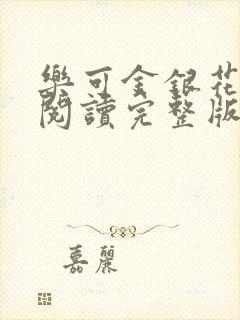 樂可金銀花
閱讀完整版
嘉麗